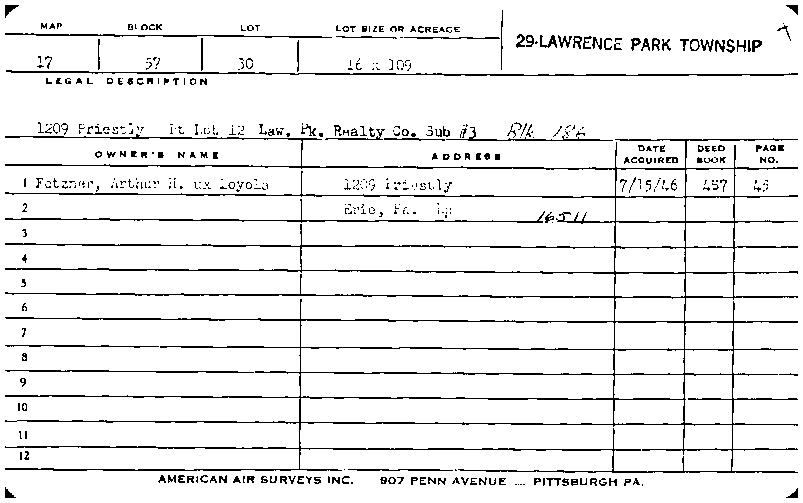 MAP BLOCK LOT LOT SIZE OR ACREAGE
29-LAWRENCE PARK TOWNSHIP
17 57 30 16 x 109
LEGAL DESCRIPTION
1209 Priestly Pt Lot 12 Law. Pk. Realty Co. Sub #3 Blk 186
OWNER'S NAME ADDRESS DATE ACQUIRED DEED BOOK PAGE NO.
1 Fetzner, Arthur H. ux Loyola 1209 Priestly 7/15/46 457 49
2 Erie, Pa. 16511
3
4
5
6
7
8
9
10
11
12
AMERICAN AIR SURVEYS INC. 907 PENN AVENUE .... PITTSBURGH PA.